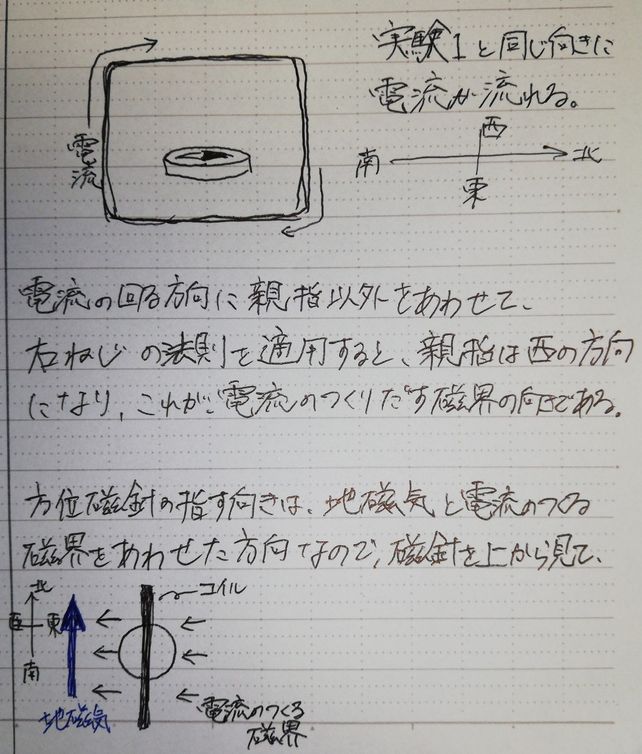 実験1と同じ向きに
電流が流れる。
電流
西
南
北
東
電流の回る方向に親指以外をあわせて、
右ねじの法則を適用すると、親指は西の方向
になり、これが、電流のつくりだす磁界の向きである。
方位磁針の指す向きは、地磁気と電流のつくる
磁界をあわせた方向なので、磁針を上から見て、
北
コイル
西
東
南
地磁気
電流のつくる
磁界